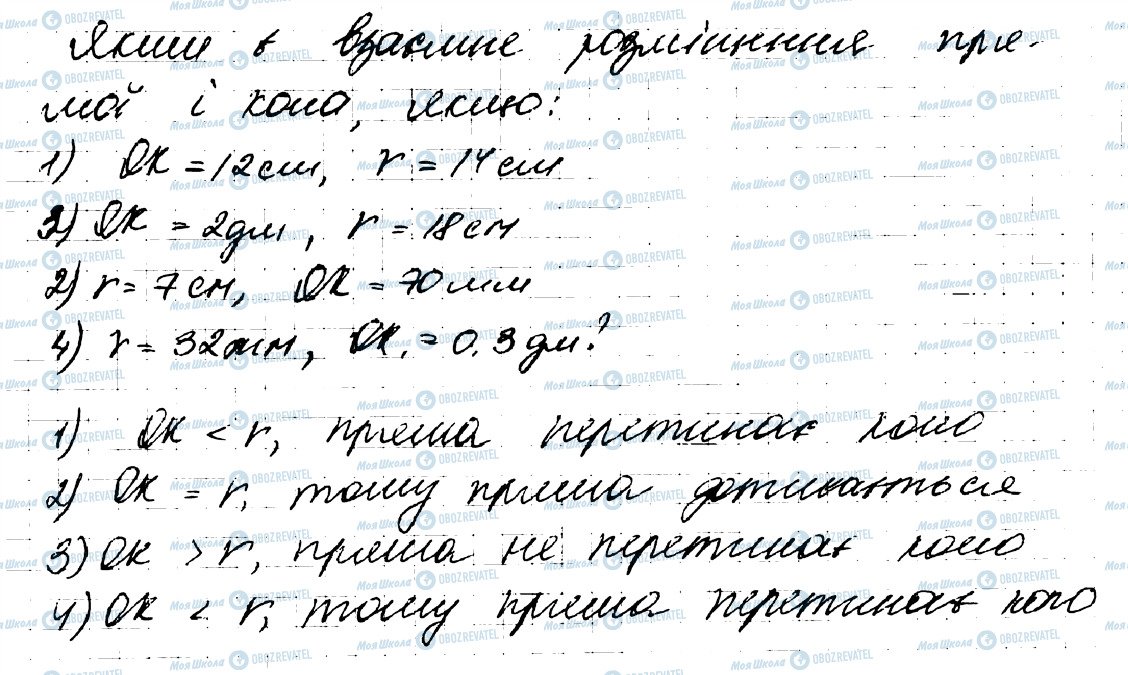 Яким є взаємне розміщення пря-
мої і кола, якщо:
1) OK = 12 см, r = 14 см
3) OK = 2 дм, r = 18 см
2) r = 7 см, OK = 70 мм
4) r = 32 мм, OK = 0.3 дм?
1) OK < r, пряма перетинає коло
2) OK = r, тому пряма дотикається
3) OK > r, пряма не перетинає коло
4) OK < r, тому пряма перетинає коло
МояШкола OBOZREVATEL